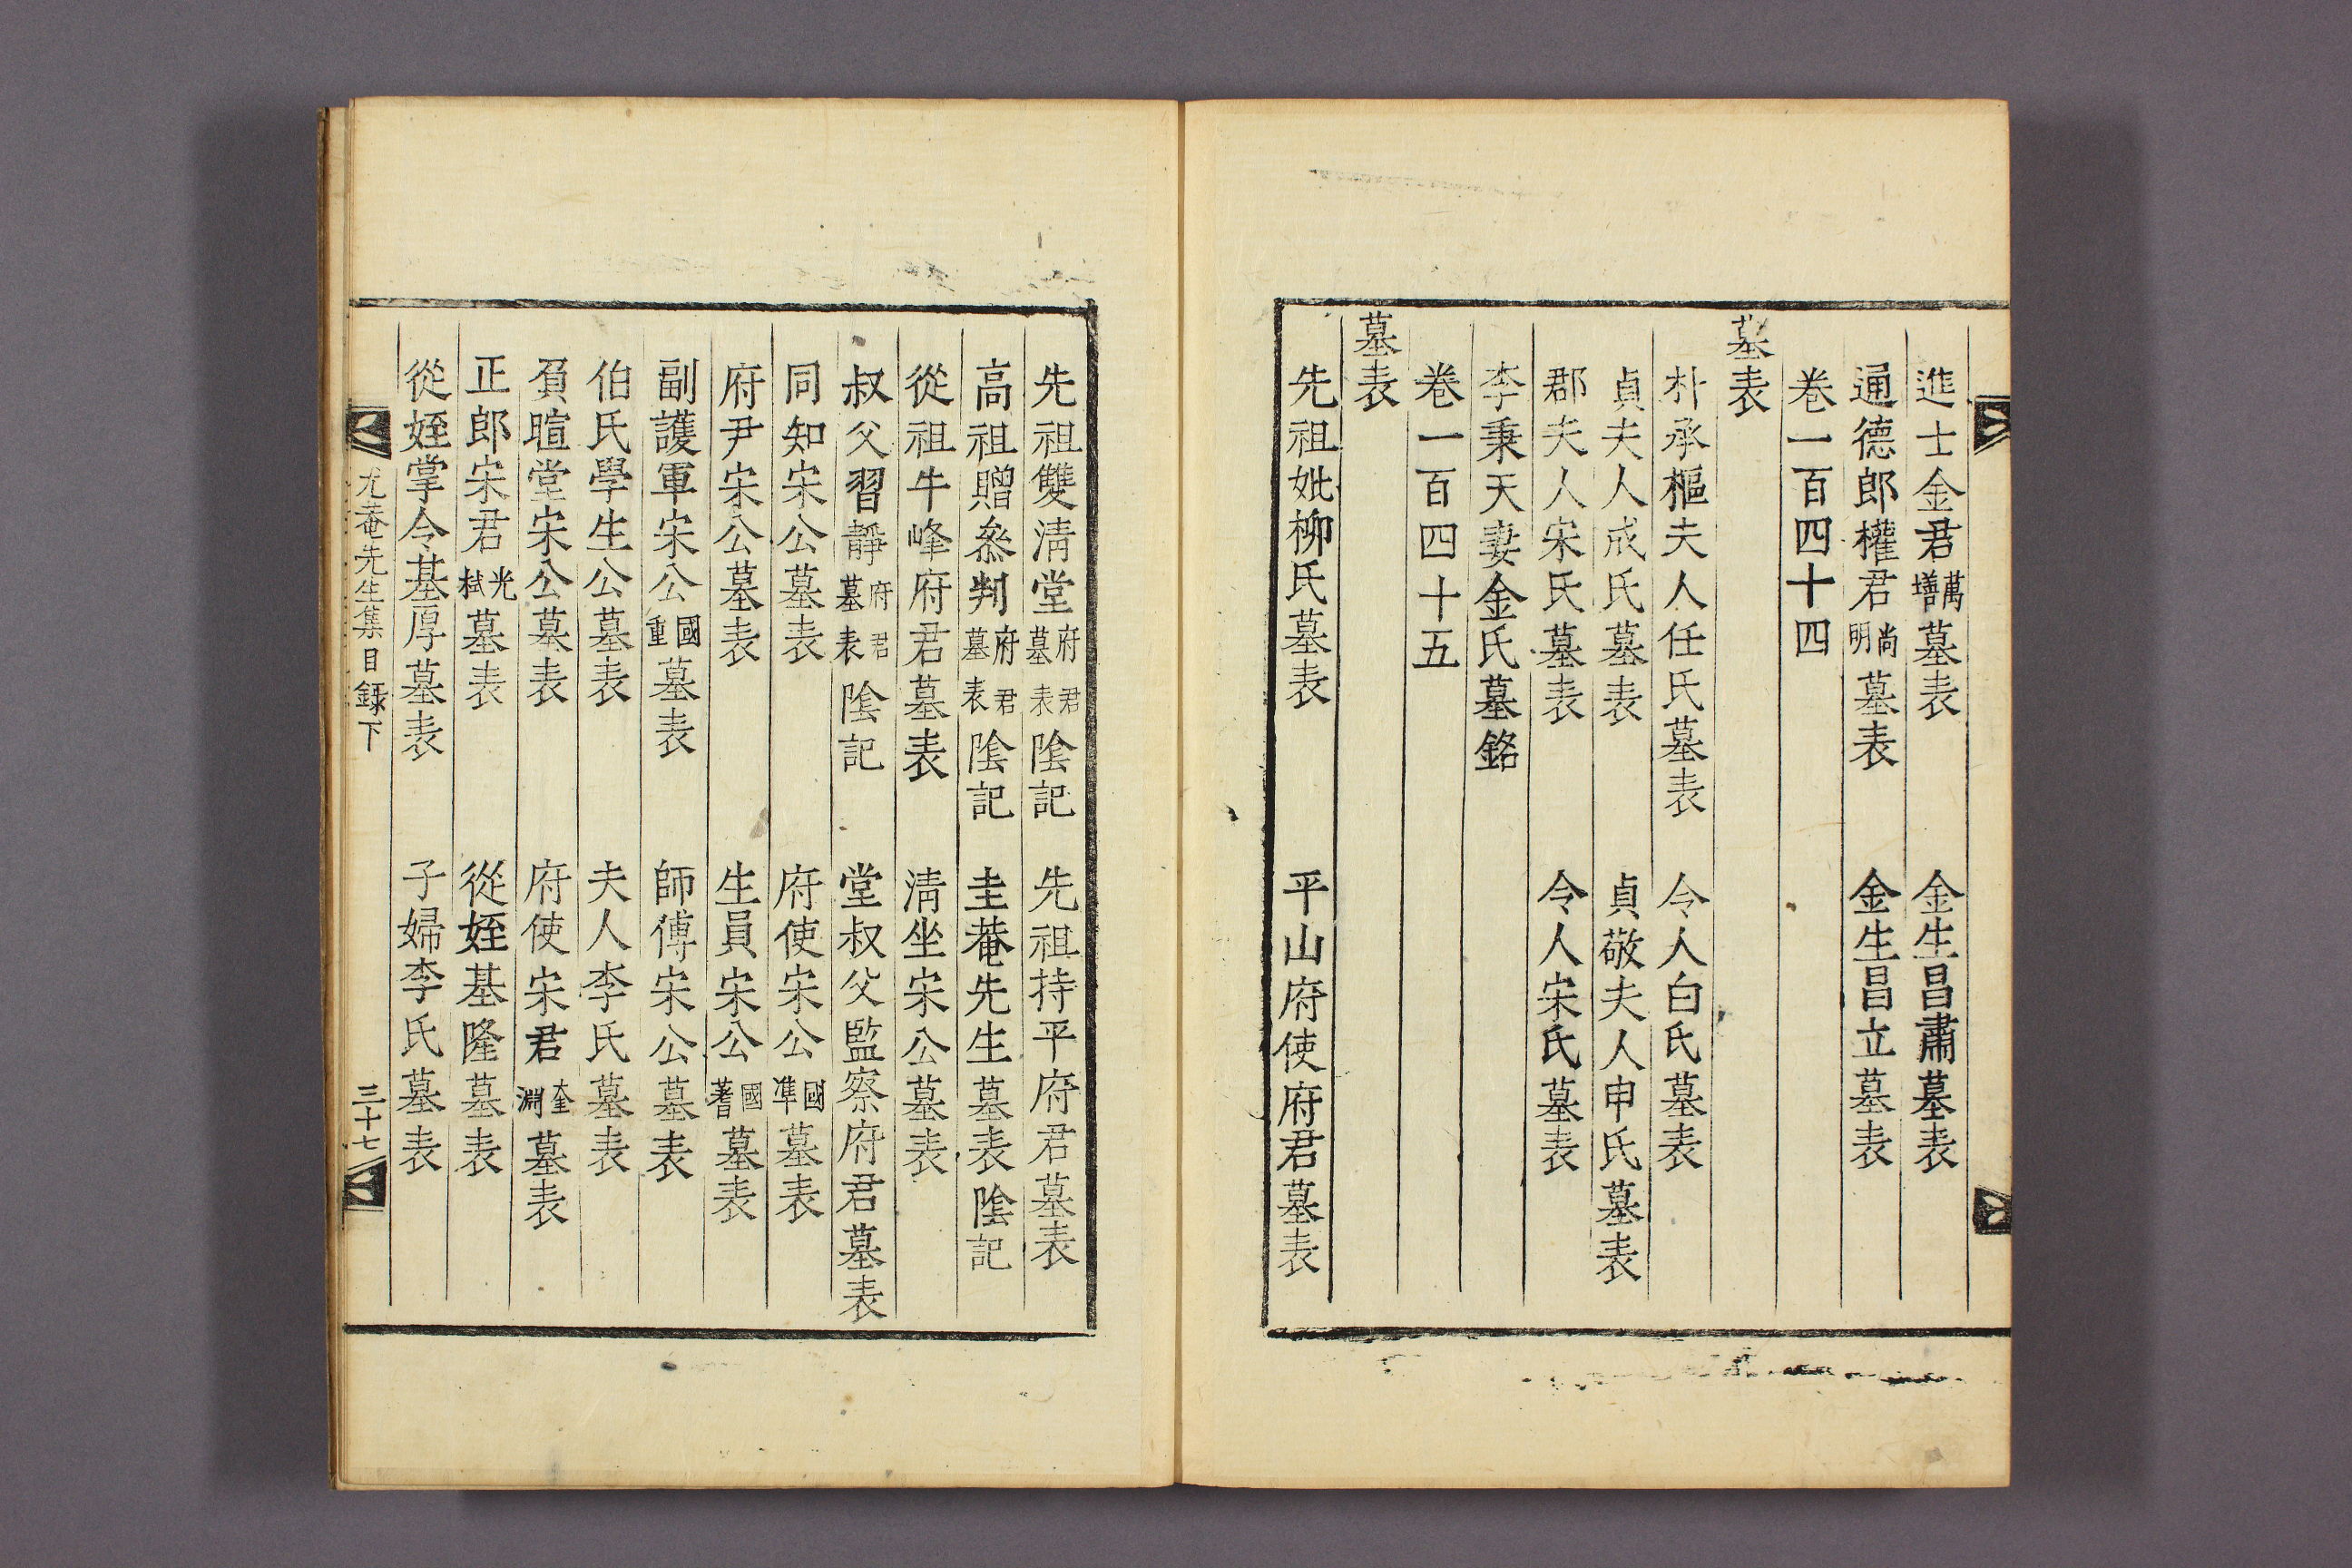 進士金君萬墡墓表　金生昌肅墓表
通德郎權君尚明墓表　金生昌立墓表
卷一百四十四
墓表
朴承樞夫人任氏墓表　令人白氏墓表
貞夫人成氏墓表　貞敬夫人申氏墓表
郡夫人宋氏墓表　令人宋氏墓表
李秉天妻金氏墓銘
卷一百四十五
墓表
先祖妣柳氏墓表　平山府使府君墓表
先祖雙淸堂府君墓表陰記　先祖持平府君墓表
高祖贈叅判府君墓表陰記　圭菴先生墓表陰記
從祖牛峰府君墓表　淸坐宋公墓表
叔父習靜府君墓表陰記　堂叔父監察府君墓表
同知宋公墓表　府使宋公國準墓表
府尹宋公墓表　生員宋公國蓍墓表
副護軍宋公國重墓表　師傅宋公墓表
伯氏學生公墓表　夫人李氏墓表
負暄堂宋公墓表　府使宋君奎淵墓表
正郎宋君光栻墓表　從姪基隆墓表
從姪掌令基厚墓表　子婦李氏墓表
尤菴先生集目録下　三十七